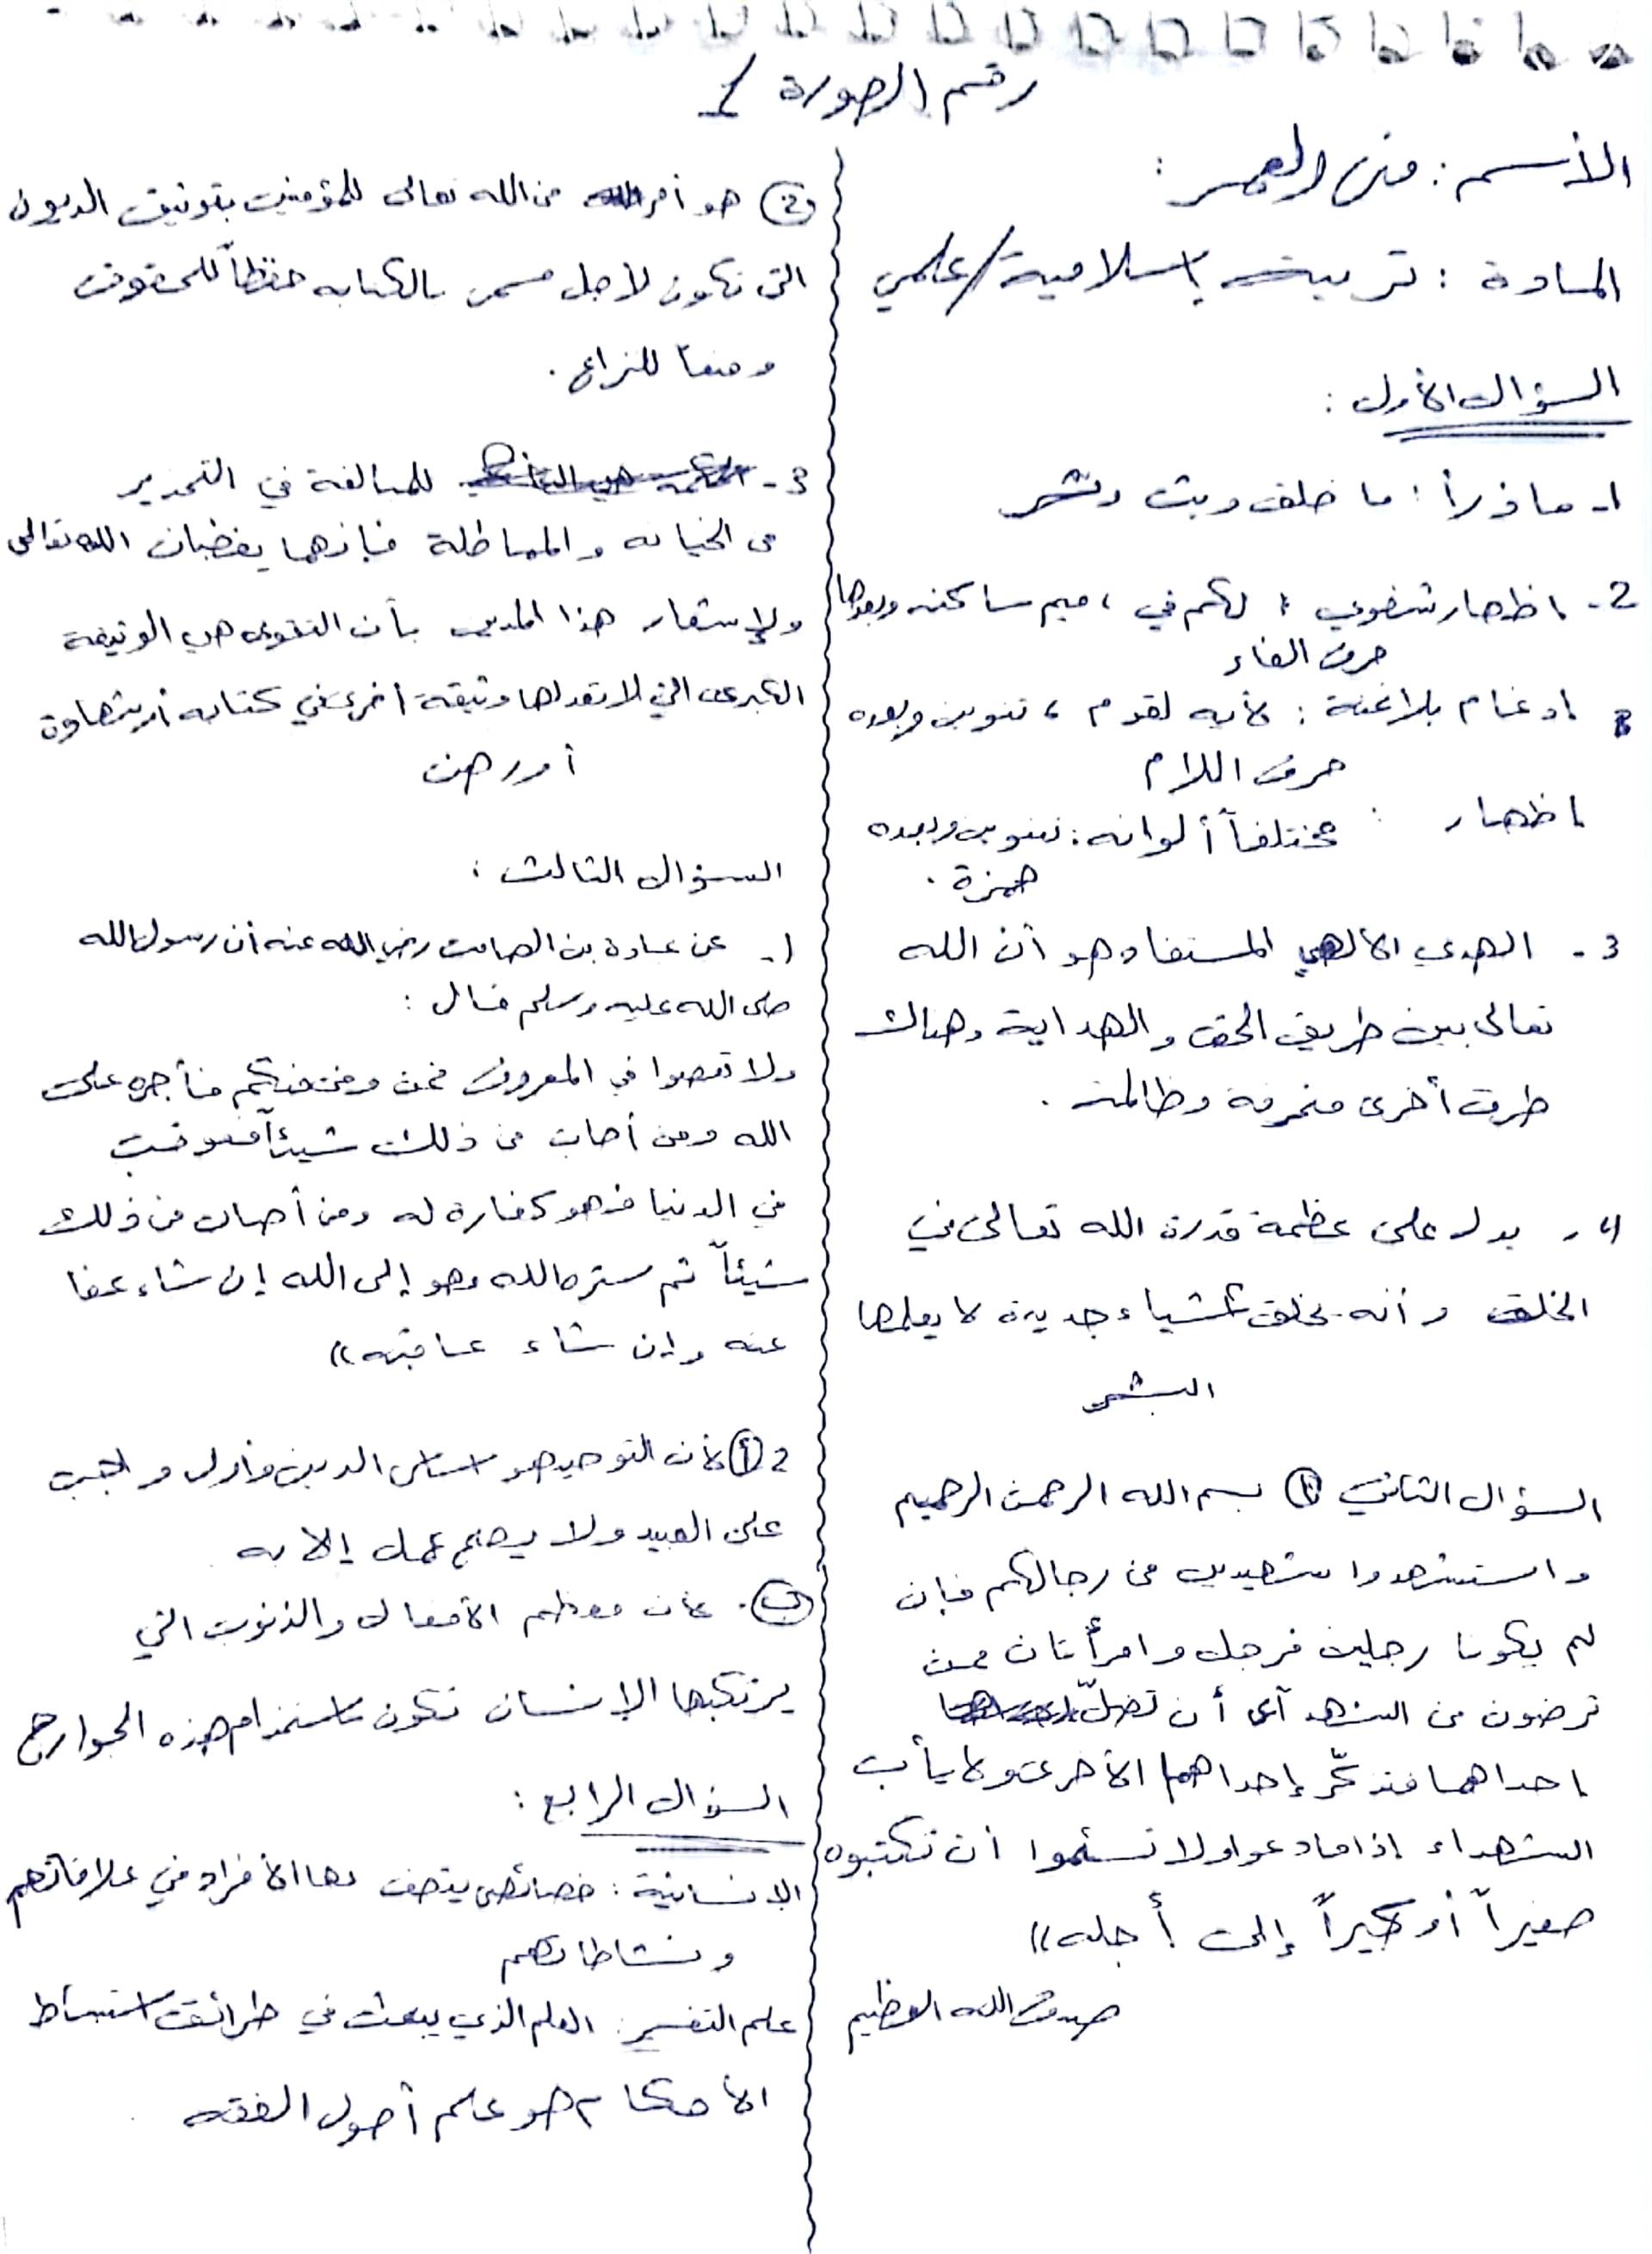 رقم الصورة 1
الأسم : منى العمر :
المادة : تربية إسلامية / علمي
السؤال الأول :
1- ما ذرأ : ما خلق وبث ونشر
2- اظهار شفوي : لكم في ، ميم ساكنه وبعدها
حرف الفاء
إدغام بلا غنة : لأيه لقوم ، تنوين وبعده
حرف اللام
إظهار : مختلفاً ألوانه : تنوين وبعده
همزة .
3- الهدي الالهي المستفاد هو أن الله
تعالى بين طريق الحق والهداية وهناك
طرق أخرى منحرفة وظالمة .
4- يدل على عظمة قدرة الله تعالى في
الخلق وأنه يخلق أشياء جديدة لا يعلمها
البشر
السؤال الثاني 1 بسم الله الرحمن الرحيم
واستشهدوا شهيدين من رجالكم فإن
لم يكونا رجلين فرجل وامرأتان ممن
ترضون من الشهدآى أن تضلّ
احداهما فتذكّر إحداهما الأخرى ولا يأب
الشهداء إذا ما دعوا ولا تسئموا أن تكتبوه
صغيراً أو كبيراً إلى أجله ))
صدق الله العظيم
2 هو أمر من الله تعالى للمؤمنين بتوثيق الديون
التي تكون لأجل مسمى بالكتابه حفظاً للحقوق
ومنعاً للنزاع .
3- للمبالغة في التحذير
من الخيانه والمماطلة فإنهما يغضبان الله تعالى
ولإشعار هذا المدين بأن التقوى هي الوثيقة
الكبرى التي لا تعدلها وثيقة أخرى في كتابه أو شهادة
أو رهن
السؤال الثالث :
1- عن عبادة بن الصامت رضي الله عنه أن رسول الله
صلى الله عليه وسلم قال :
ولا تعصوا في المعروف فمن وفى منكم فأجره على
الله ومن أصاب من ذلك شيئاً فعوقب
في الدنيا فهو كفارة له ومن أصاب من ذلك
شيئاً ثم ستره الله وهو إلى الله إن شاء عفا
عنه وإن شاء عاقبه ))
2 أ لأن التوحيد هو اساس الدين وأول واجب
على العبيد ولا يصح عمل إلا به
ب . لأن معظم الأفعال والذنوب التي
يرتكبها الإنسان تكون باستخدام هذه الجوارح
السؤال الرابع :
الإنسانية : خصائص يتصف بها الأفراد في علاقاتهم
ونشاطاتهم
علم التفسير : العلم الذي يبحث في طرائق استنباط
الأحكام هو علم أصول الفقه